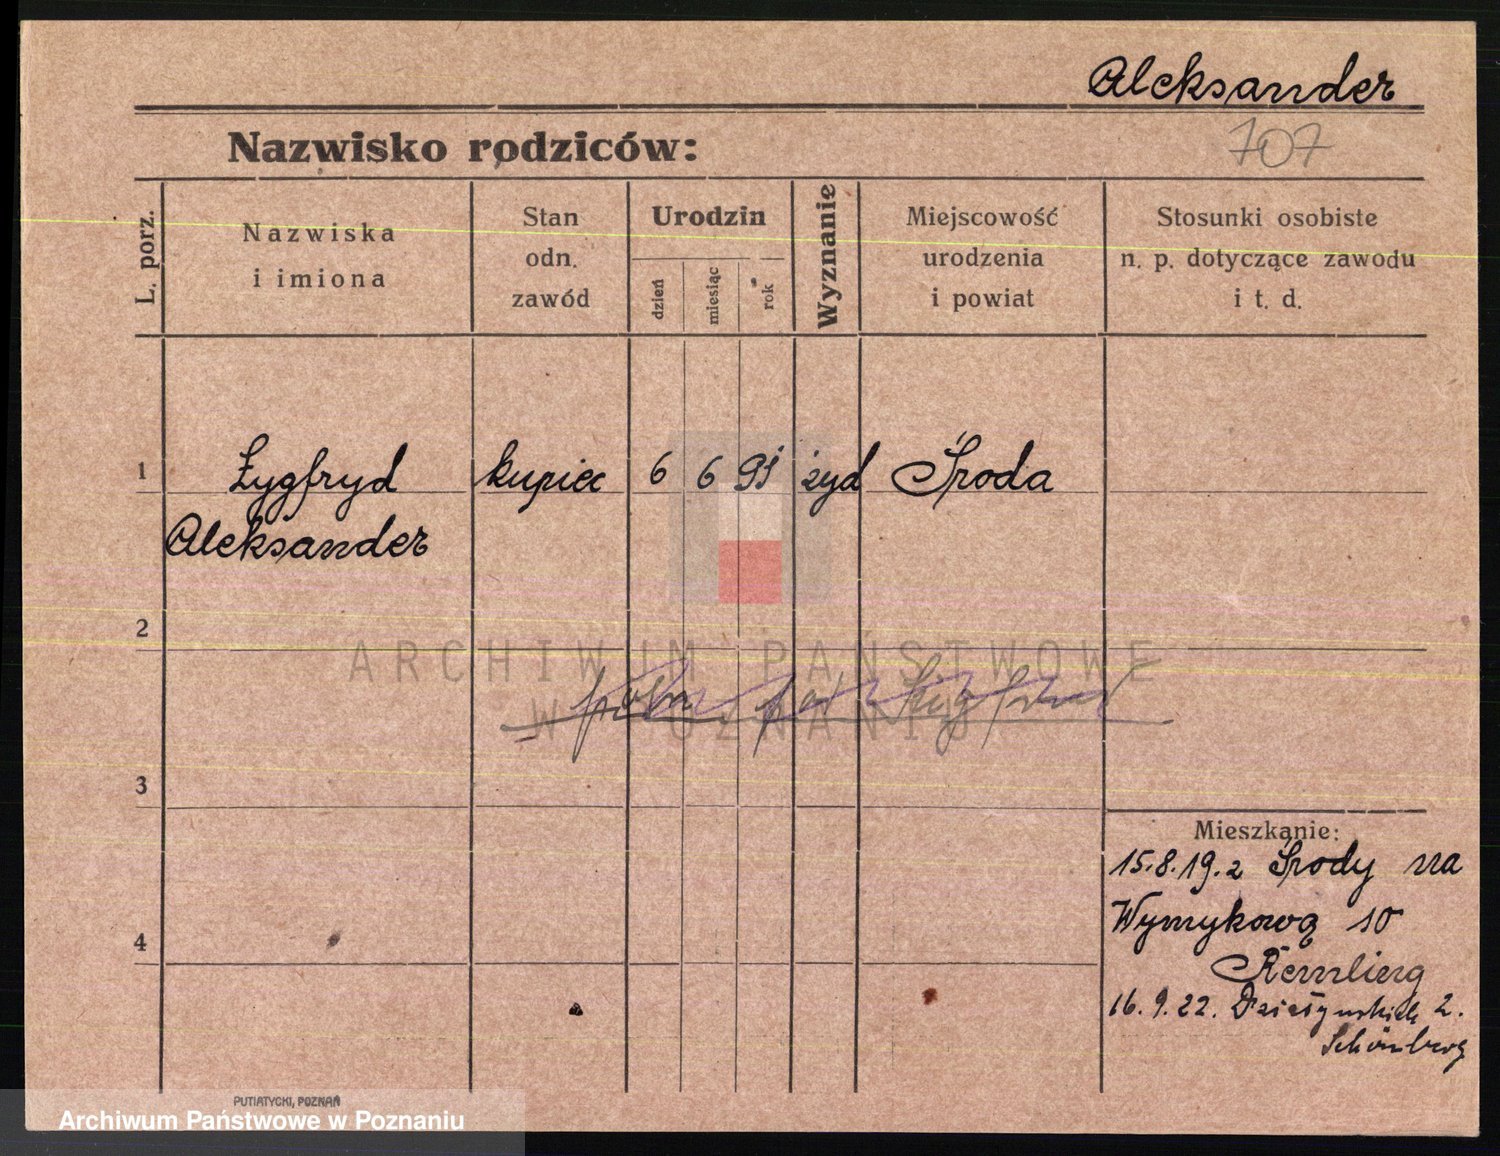 Aleksander
707
Nazwisko rodziców:
L. porz.
Nazwiska
i imiona
Stan
odn.
zawód
Urodzin
dzień
miesiąc
rok
Wyznanie
Miejscowość
urodzenia
i powiat
Stosunki osobiste
n. p. dotyczące zawodu
i t. d.
1 Zygfryd kupiec 6 6 91 żyd Środa
Aleksander
2
ARCHIWUM PAŃSTWOWE
W POZNANIU
3
Mieszkanie:
15.8.19. z Środy na
Wymykową 10
4
16.9.22. 2.
Schönberg
PUTIATYCKI, POZNAŃ
Archiwum Państwowe w Poznaniu